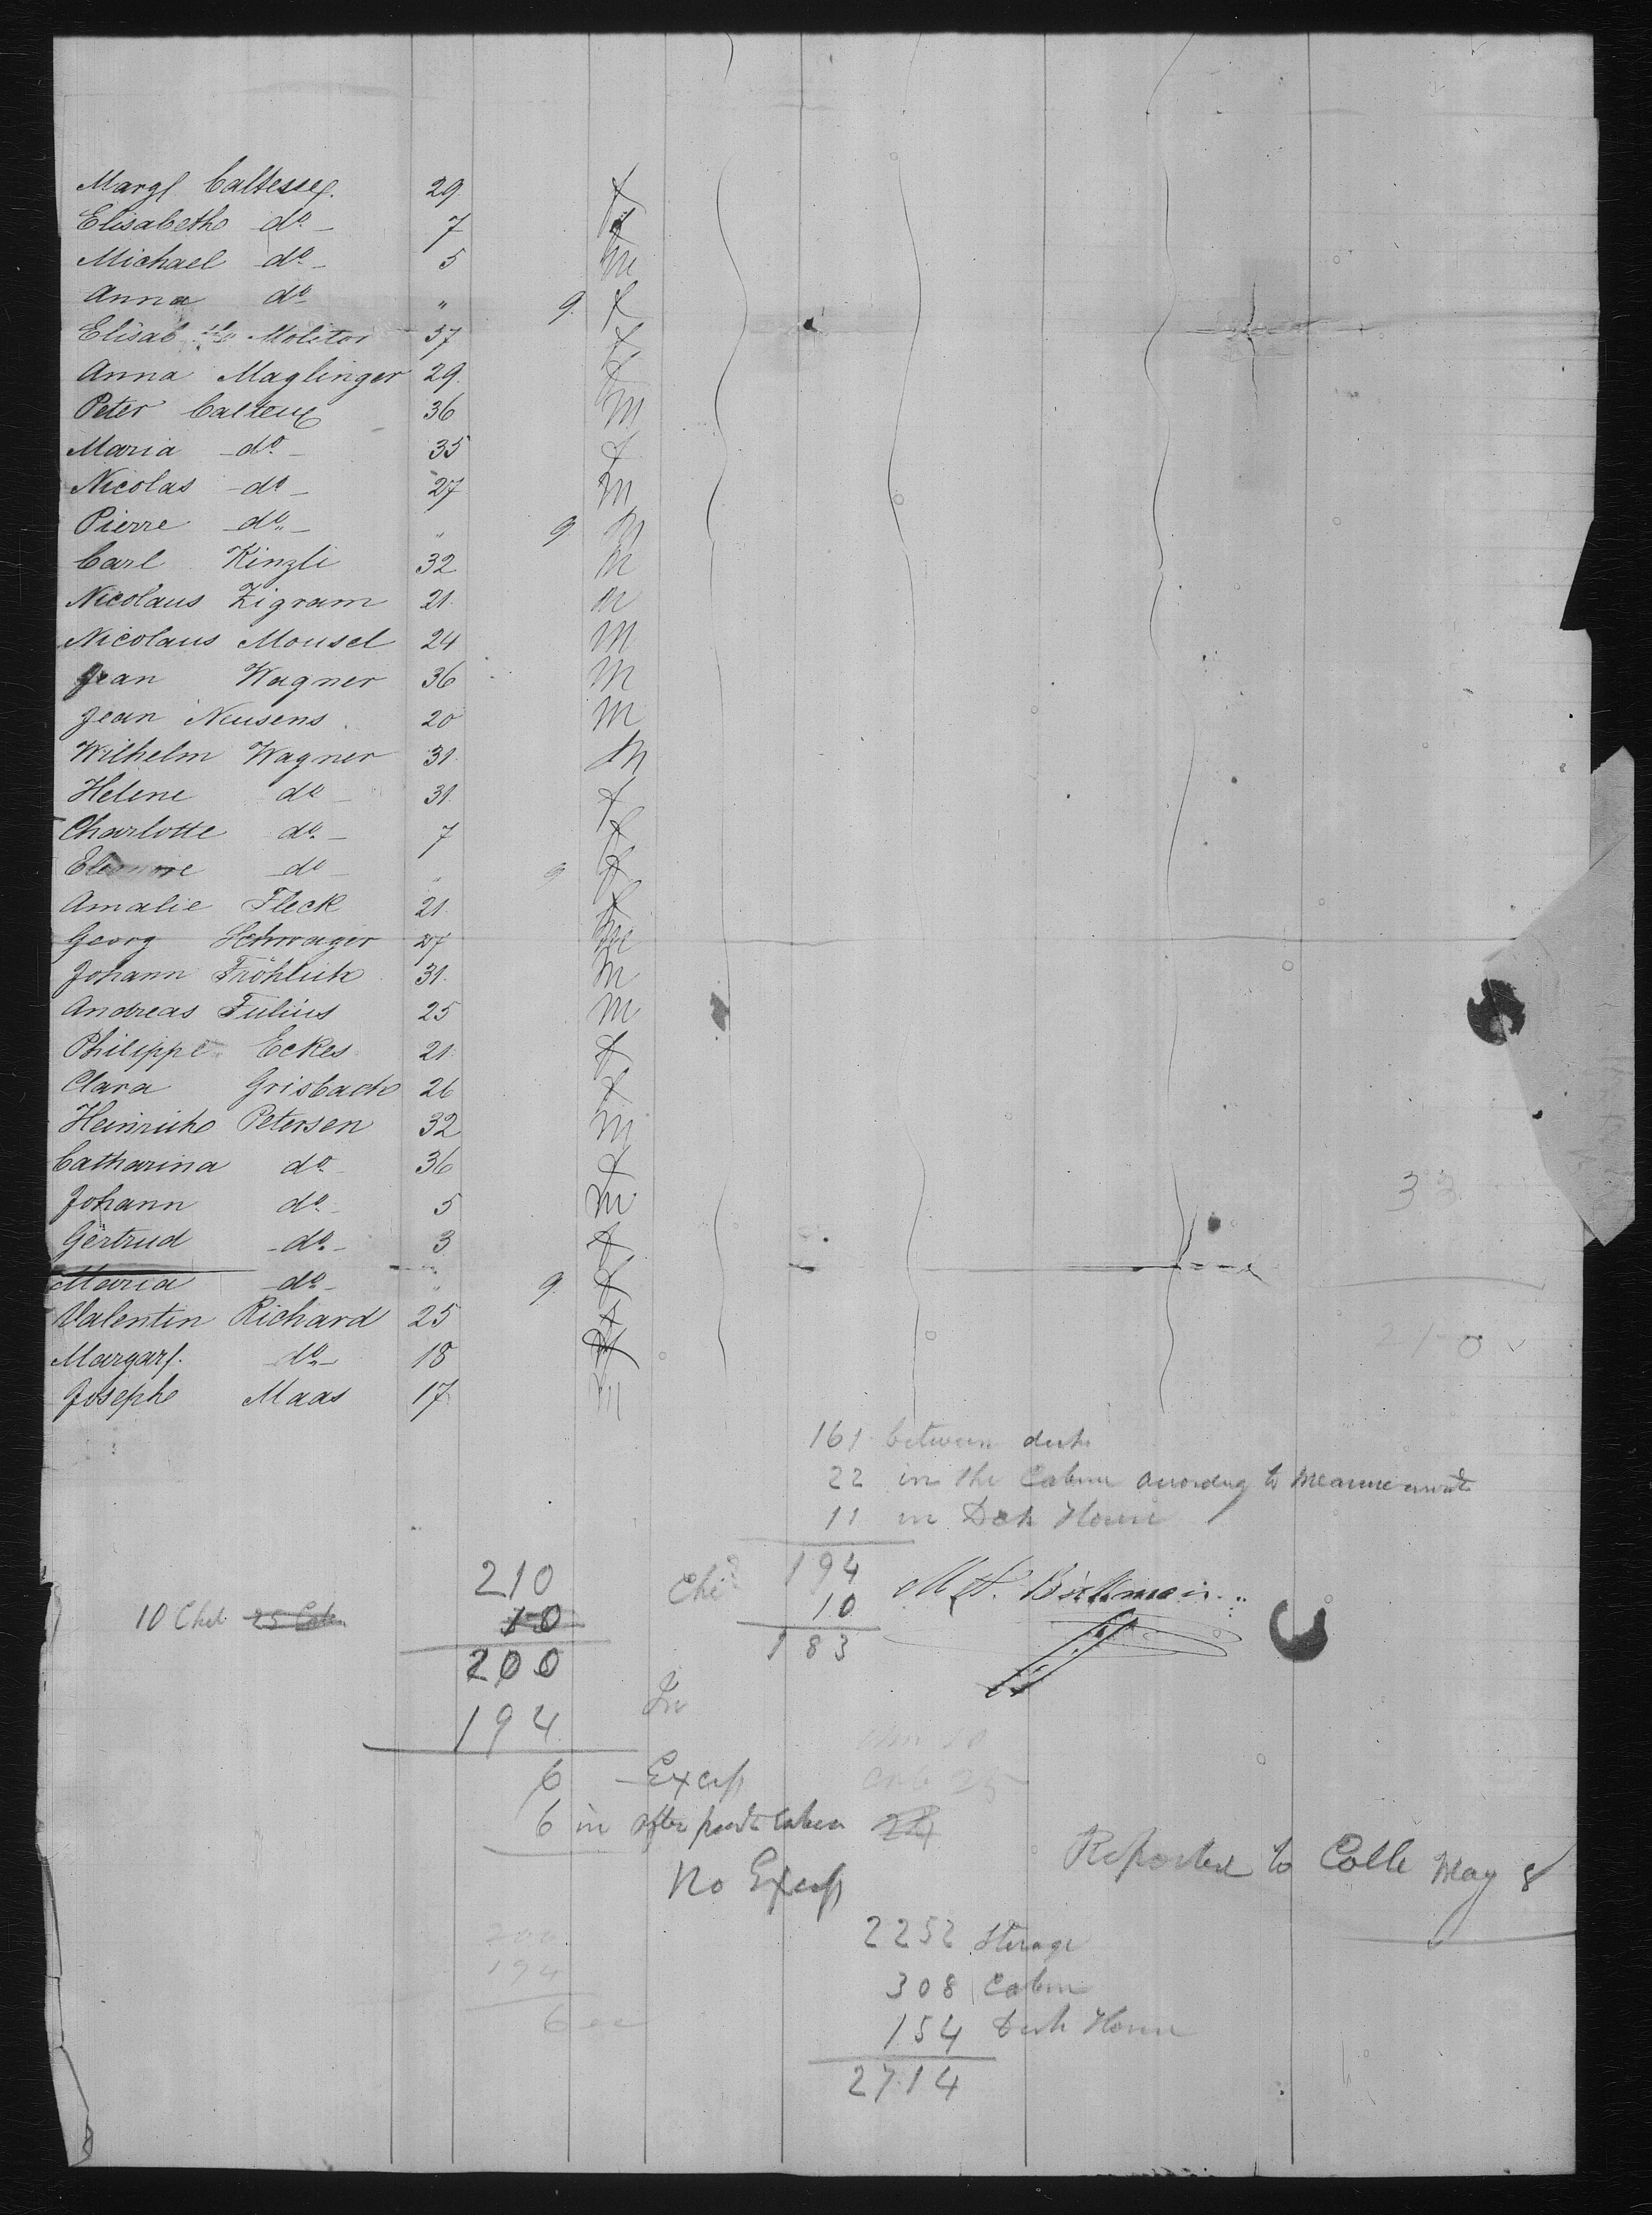 Elisabeth do 7 f
Michael do 5 m
Anna do " 9 f
Elisab Molitor 37 f
Anna Maglinger 29 f
Peter 36 m
Maria do 35 f
Nicolas do 27 m
Pierre do " 9 m
Carl Kinzli 32 m
Nicolaus Zigram 21 m
Nicolaus Mousel 24 m
Jean Wagner 36 m
Jean Neusens 20 m
Wilhelm Wagner 31 m
Helene do 31 f
Charlotte do 7 f
Eleonore do " 9 f
Amalie Fleck 21 f
Georg Schwager 27 m
Johann Fröhlich 31 m
Andreas Fulius 25 m
Philippe Eckes 21 f
Clara Grisbach 26 f
Heinrich Petersen 32 m
Catharina do 36 f
Johann do 5 m
Gertrud do 3 f
Maria do " 9 f
Valentin Richard 25
Margar. do 18 f
Josephe Maas 17 m
33
210
161 between decks
22 in the Cabin according to measurement
11 in Deck House
194
10
183
10 Chil
210
10
200
194 In
6 Excess
6 in after part Cabin
No Excess
Reported to Colle May 8
200
194
6
2252 Sterage
308 Cabin
154 Deck House
2714